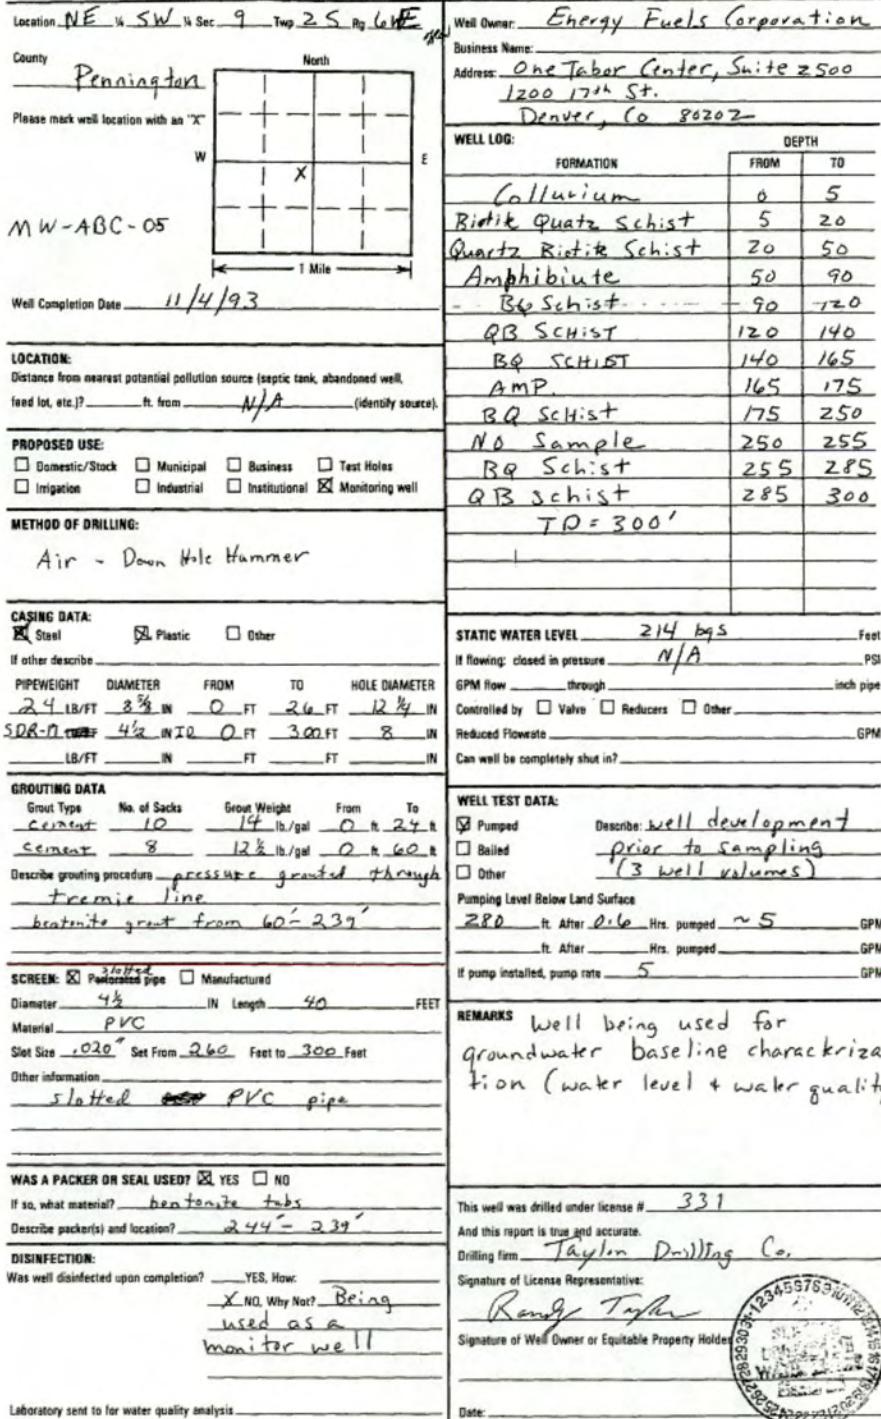 Location NE ¼ SW ¼ Sec 9 Twp 2S Rg 6 E
County
Pennington
North
Please mark well location with an "X"
W
E
X
MW-ABC-05
1 Mile
Well Completion Date 11/4/93
LOCATION:
Distance from nearest potential pollution source (septic tank, abandoned well,
feed lot, etc.)? ft. from N/A (identify source).
PROPOSED USE:
Domestic/Stock Municipal Business Test Holes
Irrigation Industrial Institutional X Monitoring well
METHOD OF DRILLING:
Air - Down Hole Hammer
CASING DATA:
X Steel X Plastic Other
If other describe
PIPEWEIGHT DIAMETER FROM TO HOLE DIAMETER
24 LB/FT 8 5/8 IN 0 FT 26 FT 12 1/4 IN
4 1/2 IN ID 0 FT 300 FT 8 IN
LB/FT IN FT FT IN
GROUTING DATA
Grout Type No. of Sacks Grout Weight From To
cement 10 14 lb./gal 0 ft 24 ft
cement 8 12 1/2 lb./gal 0 ft 60 ft
Describe grouting procedure pressure grouted through
tremie line
bentonite grout from 60'-239'
SCREEN: X slotted Perforated pipe Manufactured
Diameter 4 1/2 IN Length 40 FEET
Material PVC
Slot Size .020" Set From 260 Feet to 300 Feet
Other information
slotted PVC pipe
WAS A PACKER OR SEAL USED? X YES NO
If so, what material? bentonite tabs
Describe packer(s) and location? 244'-239'
DISINFECTION:
Was well disinfected upon completion? YES, How:
X NO, Why Not? Being
used as a
monitor well
Laboratory sent to for water quality analysis
Well Owner: Energy Fuels Corporation
Business Name:
Address: One Tabor Center, Suite 2500
1200 17th St.
Denver, Co 80202
WELL LOG: DEPTH
FORMATION FROM TO
Colluvium 0 5
Biotik Quatz Schist 5 20
Quartz Biotik Schist 20 50
Amphibiute 50 90
BQ Schist 90 120
QB SCHIST 120 140
BQ SCHIST 140 165
AMP. 165 175
BQ Schist 175 250
No Sample 250 255
BQ Schist 255 285
QB Schist 285 300
TD = 300'
STATIC WATER LEVEL 214 bgs Feet
If flowing: closed in pressure N/A PSI
GPM flow through inch pipe
Controlled by Valve Reducers Other
Reduced Flowrate GPM
Can well be completely shut in?
WELL TEST DATA:
X Pumped Describe: well development
Bailed prior to sampling
Other (3 well volumes)
Pumping Level Below Land Surface
280 ft. After 0.6 Hrs. pumped ~ 5 GPM
ft. After Hrs. pumped GPM
If pump installed, pump rate 5 GPM
REMARKS Well being used for
groundwater baseline characteriza
tion (water level + water quality
This well was drilled under license # 331
And this report is true and accurate.
Drilling firm Taylor Drilling Co.
Signature of License Representative:
Randy Taylor
Signature of Well Owner or Equitable Property Holder
Date: